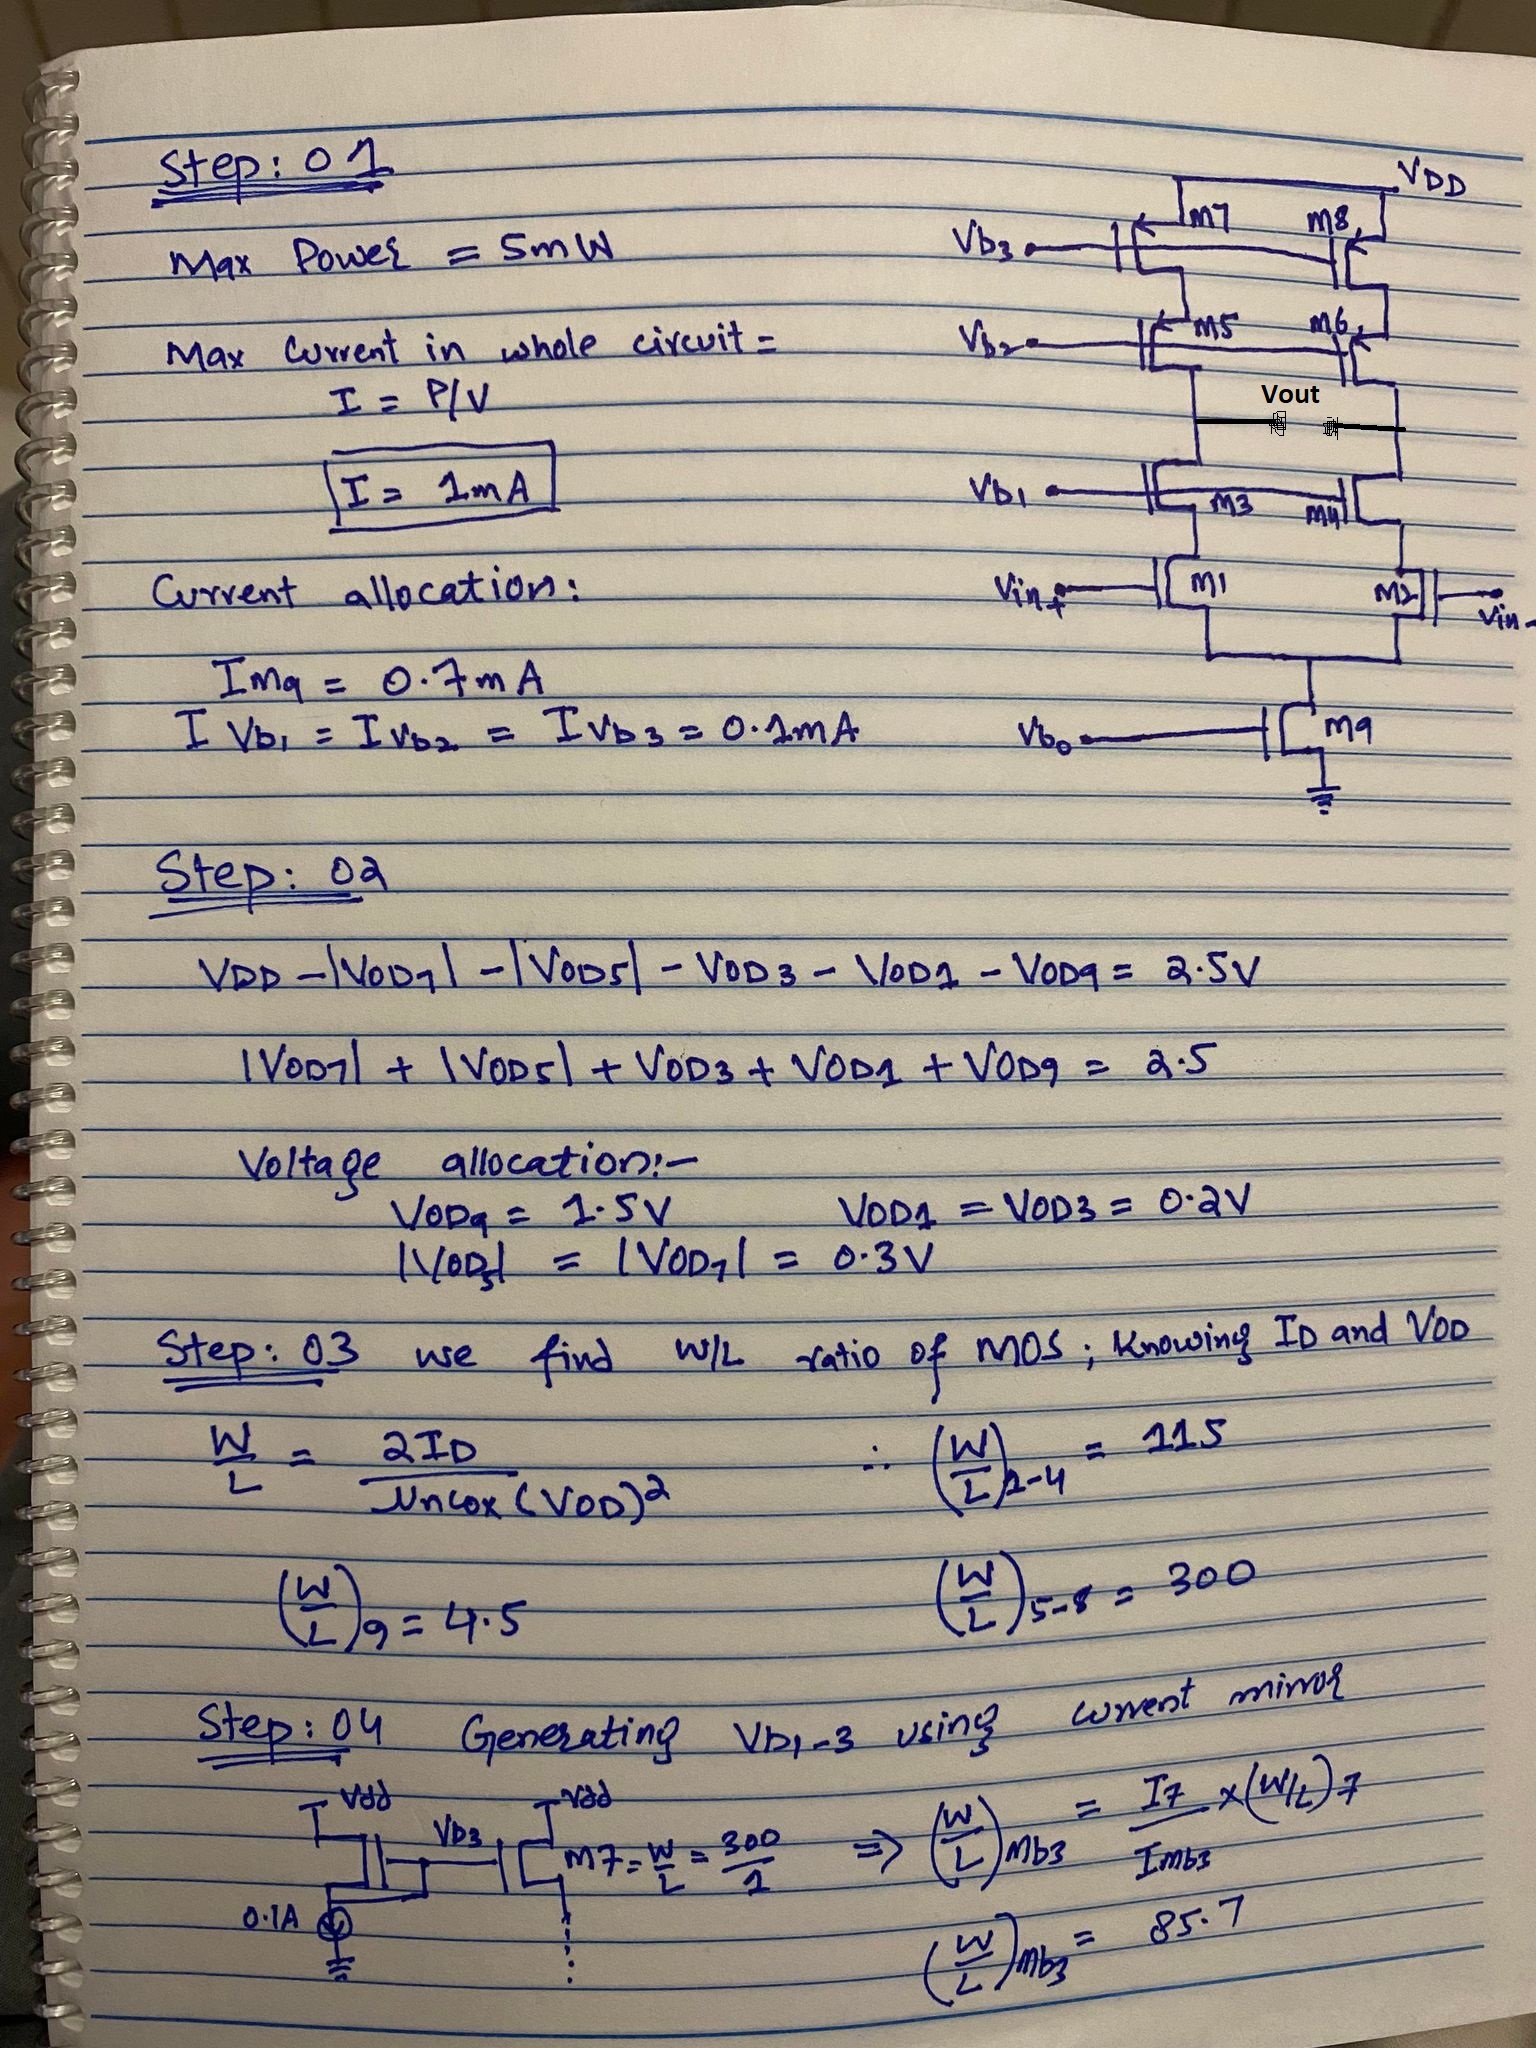 Step: 01
Max Power = 5mW
Max Current in whole circuit =
I = P/V
I = 1mA
Current allocation:
IM9 = 0.7mA
I Vb1 = I Vb2 = I Vb3 = 0.1mA
VDD
M7
M8
Vb3
M5
M6
Vb2
Vout
Vb1
M3
M4
Vin+
M1
M2
Vin-
Vb0
M9
Step: 02
VDD - |VOD7| - |VOD5| - VOD3 - VOD1 - VOD9 = 2.5V
|VOD7| + |VOD5| + VOD3 + VOD1 + VOD9 = 2.5
Voltage allocation:-
VOD9 = 1.5V VOD1 = VOD3 = 0.2V
|VOD5| = |VOD7| = 0.3V
Step: 03 we find W/L ratio of MOS; Knowing ID and VOD
W/L = 2ID / μnCox (VOD)2 ∴ (W/L)1-4 = 115
(W/L)9 = 4.5 (W/L)5-8 = 300
Step: 04 Generating Vb1-3 using current mirror
Vdd Vdd
Vb3 M7 = W/L = 300/1 => (W/L)Mb3 = I7/IMb3 x (W/L)7
0.1A
(W/L)Mb3 = 85.7